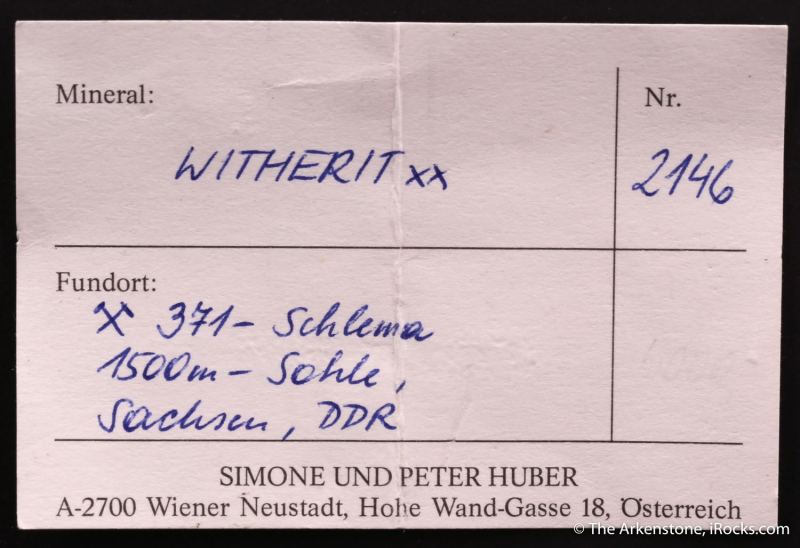 Mineral:
Nr.
WITHERIT xx
2146
Fundort:
X 371- Schlema
1500m- Sohle,
Sachsen, DDR
SIMONE UND PETER HUBER
A-2700 Wiener Neustadt, Hohe Wand-Gasse 18, Österreich
© The Arkenstone, iRocks.com